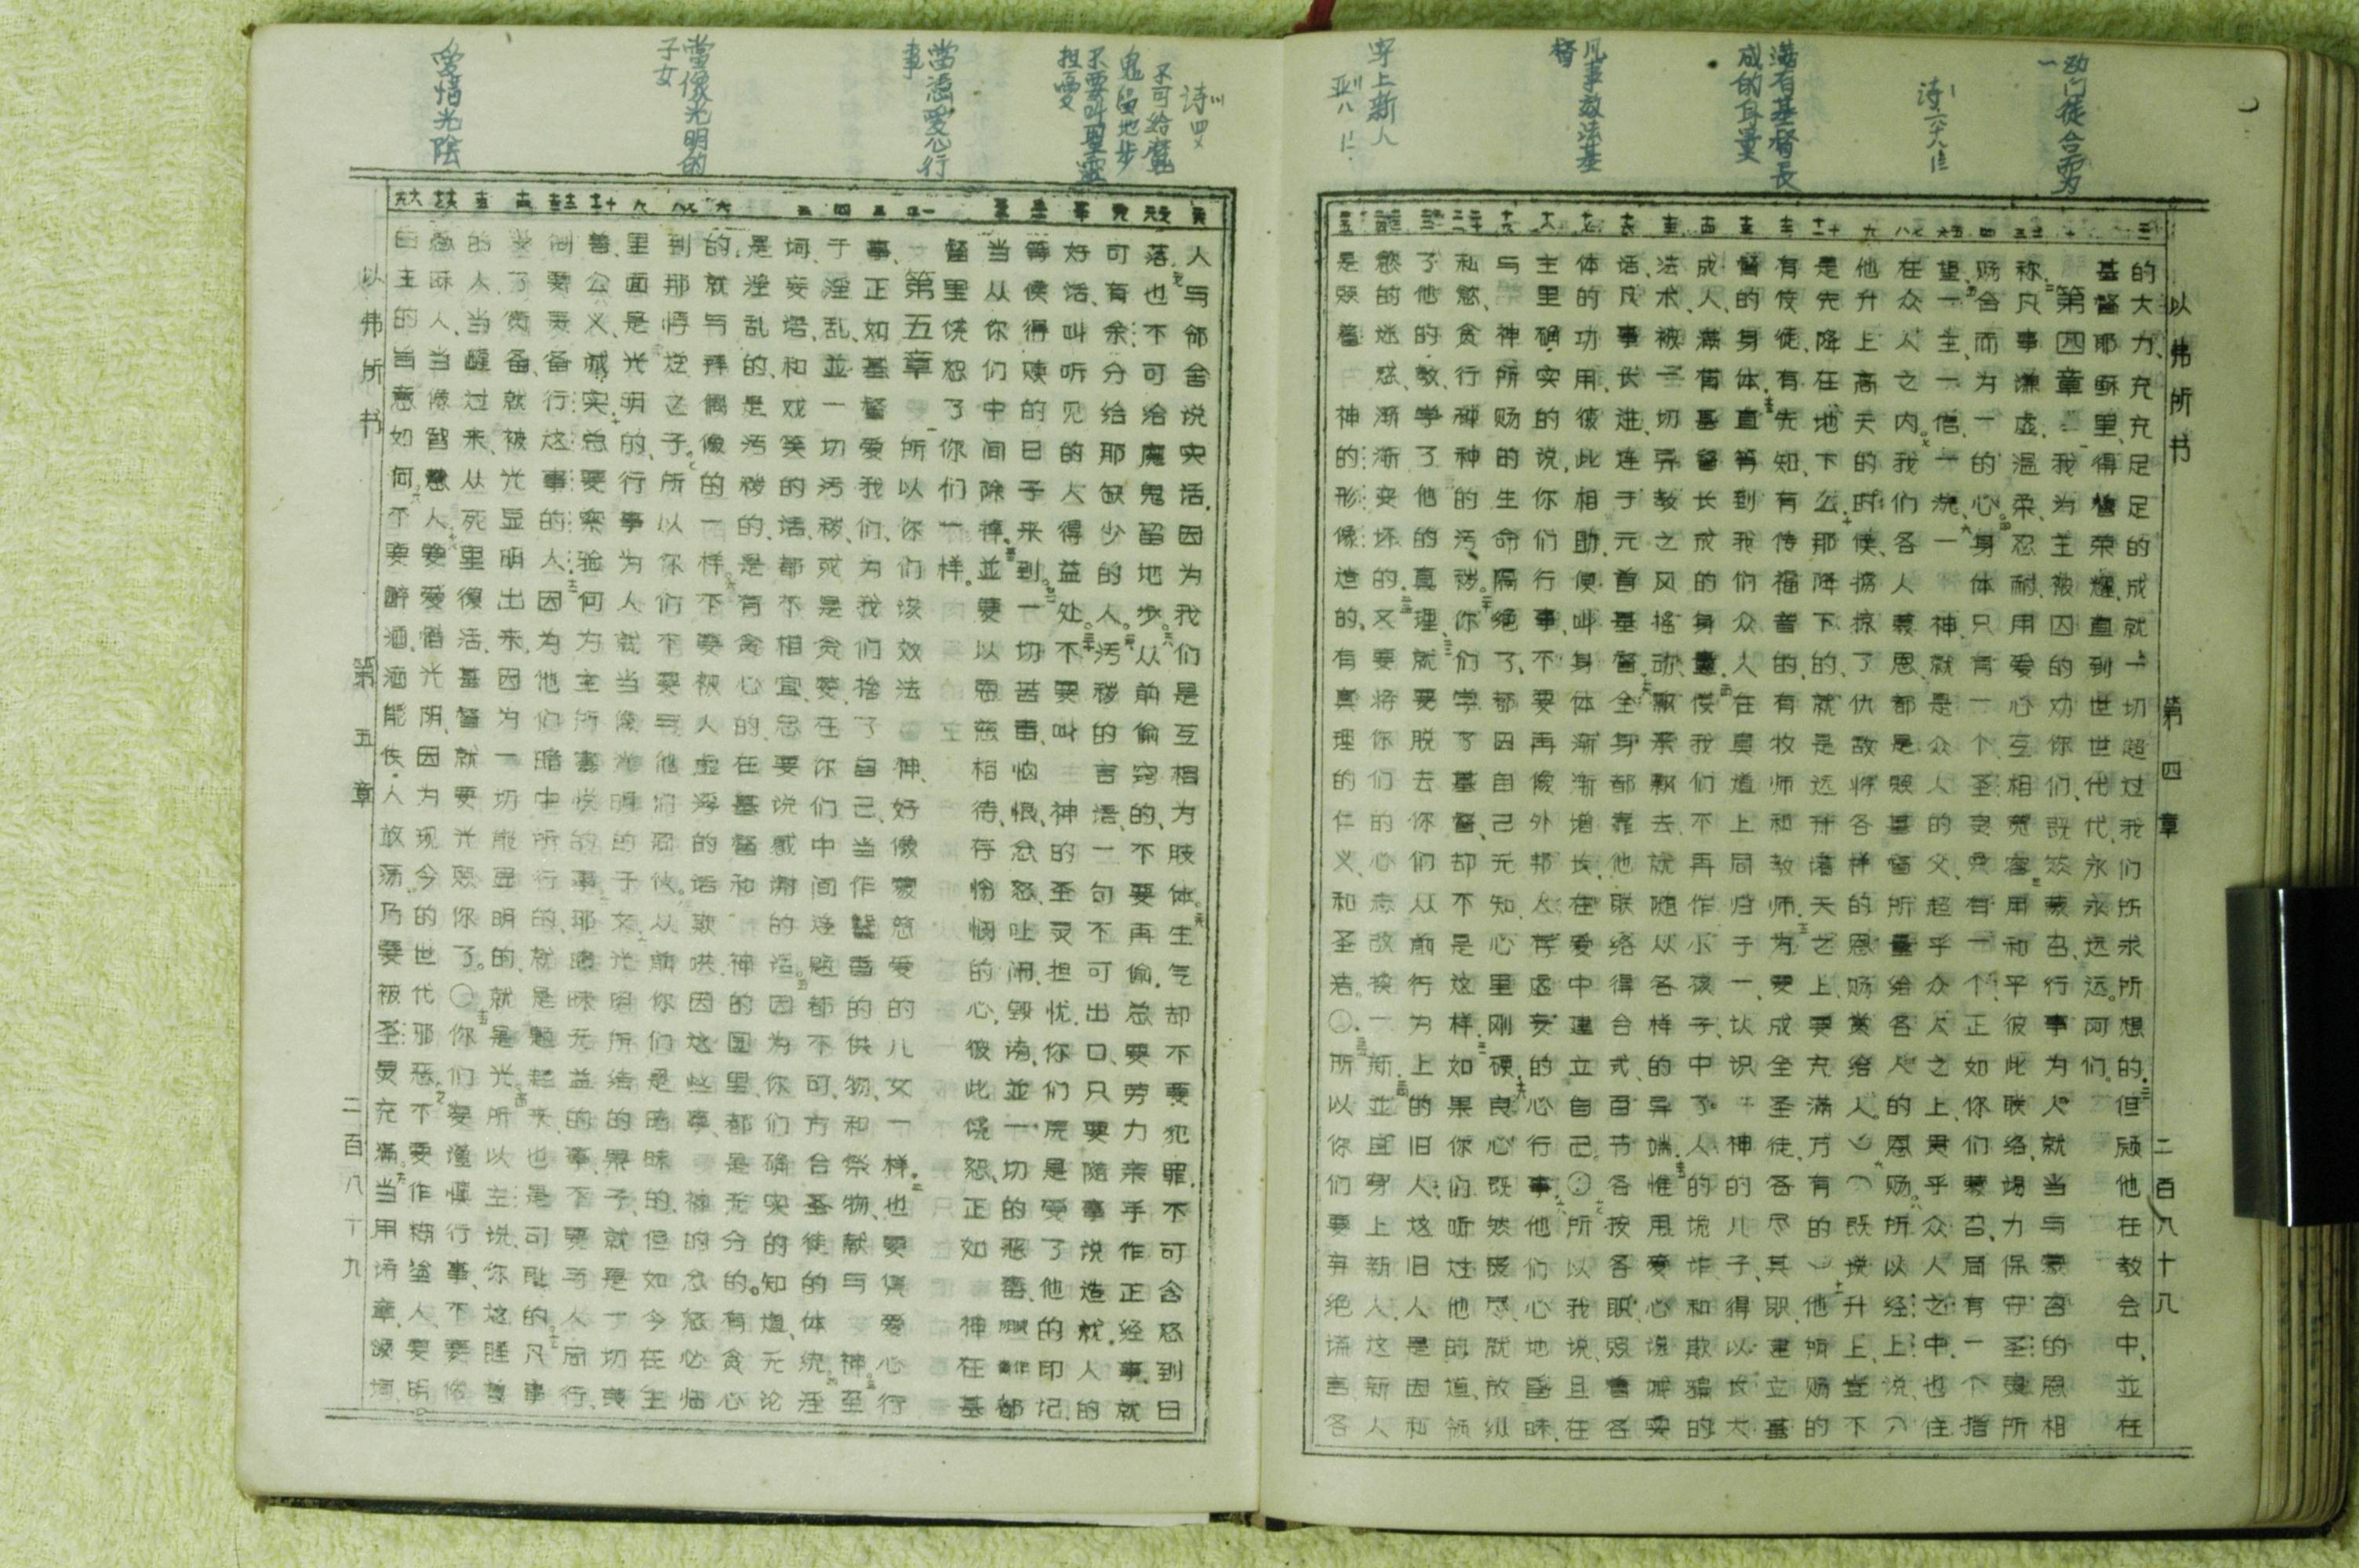 劝门徒合而为
一
满有基督長
成的身量
凡事效法基
督
穿上新人
以弗所书 第四章 二百八十八
的大力、充充足足的成就一切超过我们所求所想的。但愿他在教会中、並在
基督耶稣里、得着荣耀、直到世世代代、永永远远。阿们。
第四章 我为主被囚的劝你们、既然蒙召、行事为人、就当与蒙召的恩相
称、凡事谦虚、温柔、忍耐、用爱心互相宽容、用和平彼此联络、竭力保守圣灵所
赐合而为一的心。身体只有一个、圣灵只有一个、正如你们蒙召、同有一个指
望、一主、一信、一洗、一神、就是众人的父、超乎众人之上、贯乎众人之中、也住
在众人之内。我们各人蒙恩、都是照基督所量给各人的恩赐。所以经上说、（
他升上高天的时候、掳掠了仇敌、将各样的恩赐赏给人。）（既说升上、豈不
是先降在地下么。那降下的、就是远升诸天之上、要充满万有的。）他所赐的
有使徒、有先知、有传福音的、有牧师和教师。为要成全圣徒、各尽其职、建立基
督的身体。直等到我们众人在真道上同归于一、认识神的儿子、得以长大
成人、满有基督长成的身量。使我们不再作小孩子、中了人的诡诈和欺骗的
法术、被一切异教之风摇动、飘来飘去、就随从各样的异端。惟用爱心说誠实
话、凡事长进、连于元首基督。全身都靠他联络得合式、百节各按各职、照着各
体的功用、彼此相助、便叫身体渐渐增长、在爱中建立自己。〇所以我说、且在
主里确实的说、你们行事、不要再像外邦人、存虚妄的心行事。他们心地昏昧、
与神所赐的生命隔绝了、都因自己无知、心里刚硬。良心既然丧尽、就放纵
私慾、贪行种种的污秽。你们学了基督、却不是这样。如果你们听过他的道、领
了他的教、学了他的真理、就要脱去你们从前行为上的旧人。这旧人是因私
慾的迷惑、渐渐变坏的。又要将你们的心志改换一新。並且穿上新人。这新人
是照着神的形像造的、有真理的仁义和圣洁。〇所以你们要弃绝谎言、各
不可给魔
鬼留地步
不要叫聖靈
担憂
當憑愛心行
事
當像光明的
子女
愛惜光陰
人与邻舍说实话、因为我们是互相为肢体。生气却不要犯罪、不可含怒到日
落、也不可给魔鬼留地步。从前偷窃的、不要再偷、总要劳力亲手作正经事、就
可有余、分给那缺少的人。污秽的言语、一句不可出口、只要随事说造就人的
好话、叫听见的人得益处。不要叫神的圣灵担忧、你们原是受了他的印记、
等候得赎的日子来到。一切苦毒、恼恨、忿怒、吵闹、毁谤、並一切的恶毒、都
当从你们中间除掉。並要以恩慈相待、存怜悯的心、彼此饶恕、正如神在基
督里饶恕了你们一样。
第五章 所以你们该效法神、好像蒙慈爱的儿女一样。也要凭爱心行
事、正如基督爱我们、为我们捨了自己、当作馨香的供物、和祭物、献与神。至
于淫乱、並一切污秽、或是贪婪、在你们中间连题都不可、方合圣徒的体统。淫
词、妄语、和戏笑的话、都不相宜、总要说感谢的话。因为你们确实的知道、无论
是淫乱的、是污秽的、是有贪心的、在基督和神的国里、都是无分的。有贪心
的、就与拜偶像的一样。不要被人虚浮的话欺哄、因这些事、神的忿怒必临
到那悖逆之子。所以你们不要与他们同伙。从前你们是暗昧的、但如今在主
里面是光明的、行事为人就当像光明的子女。光明所结的果子、就是一切良
善、公义、诚实。总要察验何为主所喜悦的事。那暗昧无益的事、不要与人同行、
倒要责备行这事的人。因为他们暗中所行的、就是题起来、也是可耻的。凡事
受了责备、就被光显明出来、因为一切能显明的、就是光。所以主说、你这睡着
的人、当醒过来、从死里復活、基督就要光照你了。〇你们要谨慎行事、不要像
愚昧人、当像智慧人。要爱惜光阴、因为现今的世代邪恶。不要作糊塗人、要明
白主的旨意如何。不要醉酒、酒能使人放荡、乃要被圣灵充满。当用诗章、颂词、
以弗所书 第五章 二百八十九